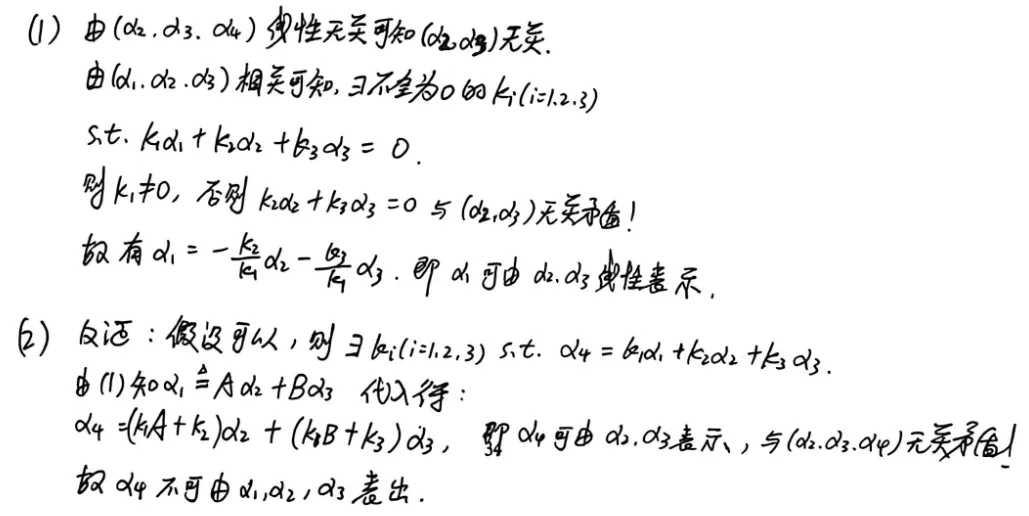 (1) 由(α₂.α₃.α₄)线性无关可知(α₂,α₃)无关.
由(α₁.α₂.α₃)相关可知,∃不全为0的kᵢ(i=1.2.3)
s.t. k₁α₁+k₂α₂+k₃α₃=0.
则k₁≠0,否则k₂α₂+k₃α₃=0与(α₂,α₃)无关矛盾!
故有α₁=-k₂/k₁α₂-k₃/k₁α₃.即α₁可由α₂.α₃线性表示.
(2) 反证:假设可以,则∃kᵢ(i=1,2,3) s.t. α₄=k₁α₁+k₂α₂+k₃α₃.
由(1)知α₁≜Aα₂+Bα₃ 代入得:
α₄=(k₁A+k₂)α₂+(k₁B+k₃)α₃,即α₄可由α₂.α₃表示,与(α₂.α₃.α₄)无关矛盾!
故α₄不可由α₁,α₂,α₃表出.